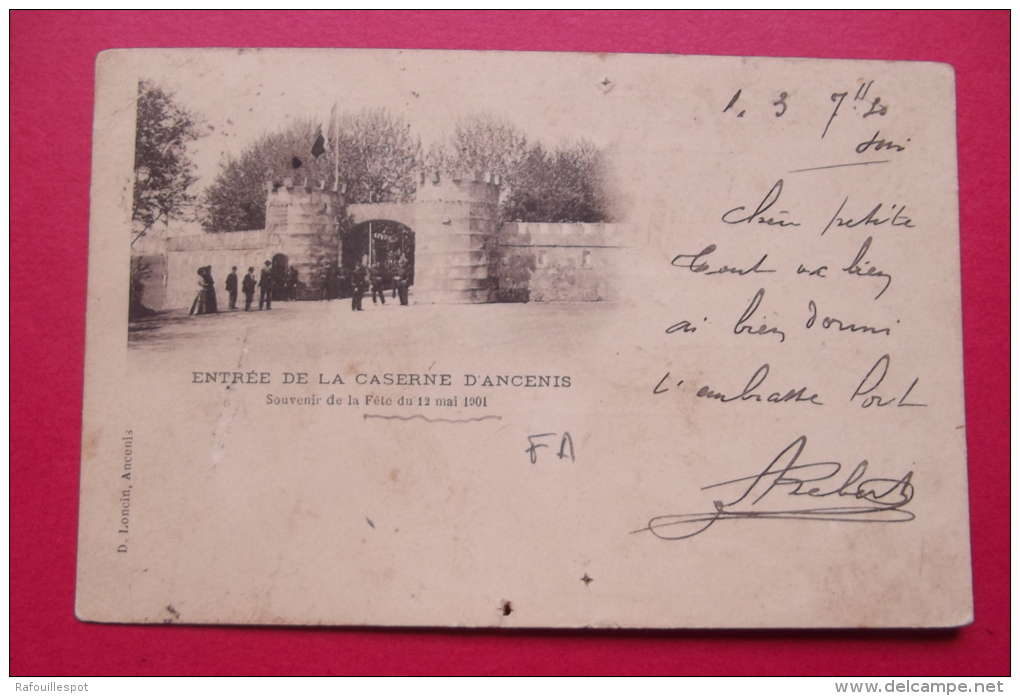 ENTRÉE DE LA CASERNE D'ANCENIS
Souvenir de la Fête du 12 mai 1901
D. Loncin, Ancenis
FA
petite
Tout va bien
ai bien dormi
t'embrasse fort
Rafouillespot
www.delcampe.net